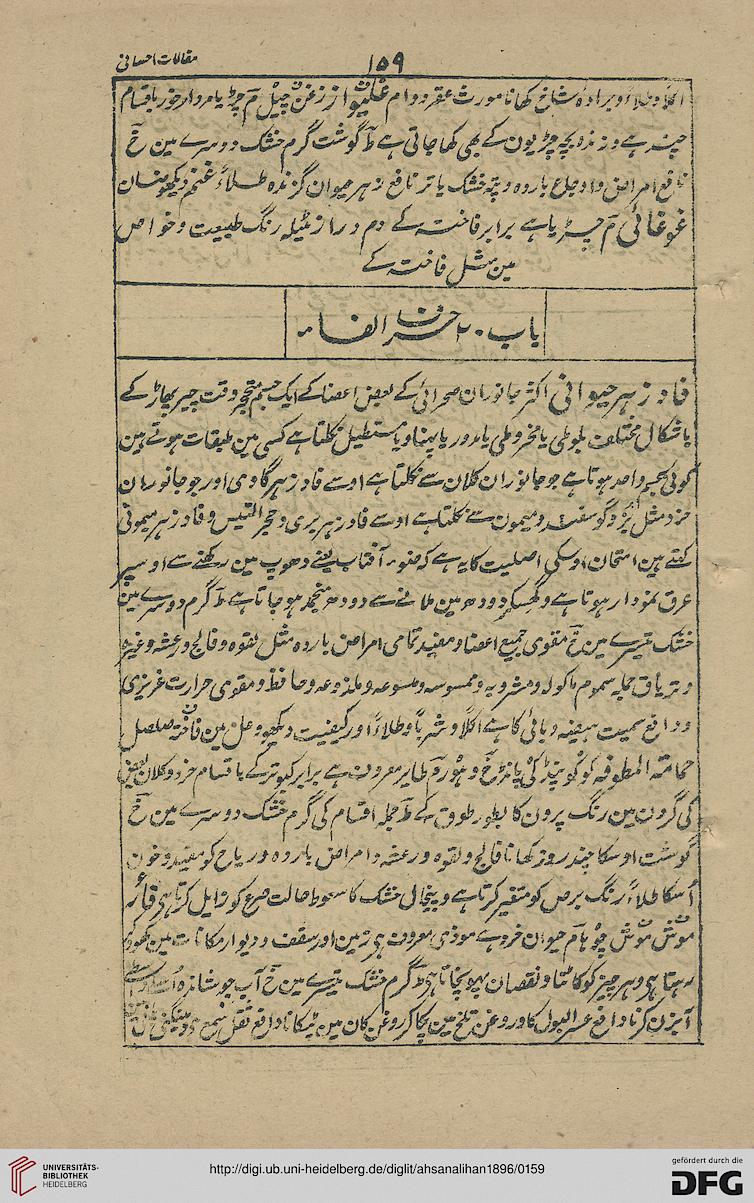 مقالات احسانی
۱۵۹
اکلاً وطلاءً وبرادہ شاخ کھانا مورث عقر دوام غلیواز زغن چیل م چڑیا مردار خور باقسام
ہے وزندہ بچہ چڑیون کے بھی کھا جاتی ہے ط گوشت گرم خشک دوسرے مین خ
نافع امراض واوجاع باردہ وپتہ خشک یا تر نافع زہر حیوان گزندہ طلاءً غنم دیکھو ضان
غوغائی م چڑیا ہے برابر فاختہ کے دم دراز مٹیلہ رنگ طبیعت وخواص
مین مثل فاختہ کے
باب ۲۰ حرف الفاء
فادزہر حیوانی اکثر جانوران صحرائی کے بعض اعضا کے ایک جسم متحجر وقت چیر پھاڑ کے
باشکال مختلف بلوطی یا مخروطی یا مدور یا پہناویا مستطیل نکلتا ہے کسی مین طبقات ہوتے ہین
کوئی لجسم واحد ہوتا ہے جو جانوران کلان سے نکلتا ہے اوسے فادزہر گاوی اور جو جانوران
خرد مثل بز وگوسفند ومیمون سے نکلتا ہے اوسے فادزہر بری وحجر التیس وفادزہر میمونی
کہتے ہین امتحان اوسکی اصلیت کا یہ ہے کہ ضوء آفتاب یعنے دھوپ مین رکھنے سے اوسپر
عرق نمودار ہوتا ہے وگھسکر دودھ مین ملانے سے دودھ منجمد ہو جاتا ہے ط گرم دوسرے مین
خشک تیسرے مین خ مقوی جمیع اعضا ومفید تمامی امراض باردہ مثل لقوہ وفالج ورعشہ وغیرہ
وتریاق جملہ سموم ماکولہ ومشروبہ وممسوسہ وملسوعہ وملذوعہ وحافظ ومقوی حرارت غریزی
ودافع سمیت ہیضہ وبائی کا ہے اکلاً وشرباً وطلاءً اور کیفیت دیکھو وعل مین فاختہ صلصل
حمامۃ المطوقہ کوکو پنڈکی م طایر معروف ہے برابر کبوتر کے باقسام خرد وکلان بعض
کی گردن مین رنگ پرون کا بطور طوق کے ط جملہ اقسام کی گرم خشک دوسرے مین خ
گوشت اوسکا چند روز کھانا فالج ولقوہ ورعشہ وامراض باردہ وریاح کو مفید وخون
اُسکا طلاءً رنگ برص کو متغیر کرتا ہے وپنچال خشک کا سعوط حالت صرع کو زایل کرتا ہی فار
موش موش چوہا م حیوان خرد ہے موذی معروف ہی زمین اور سقف ودیوار مکانات مین کھود کر
رہتا ہی وہر چیز کو کاٹتا ونقصان پہونچاتا ہی ط گرم خشک تیسرے مین خ آب جوشاندہ اُسکا
آبزن کرنا دافع عسر البول کا وروغن تلخ مین پکا کر روغن کان مین ٹپکانا دافع ثقل سمع ومینگنی
UNIVERSITÄTS-
BIBLIOTHEK
HEIDELBERG
http://digi.ub.uni-heidelberg.de/diglit/ahsanalihan1896/0159
gefördert durch die
DFG